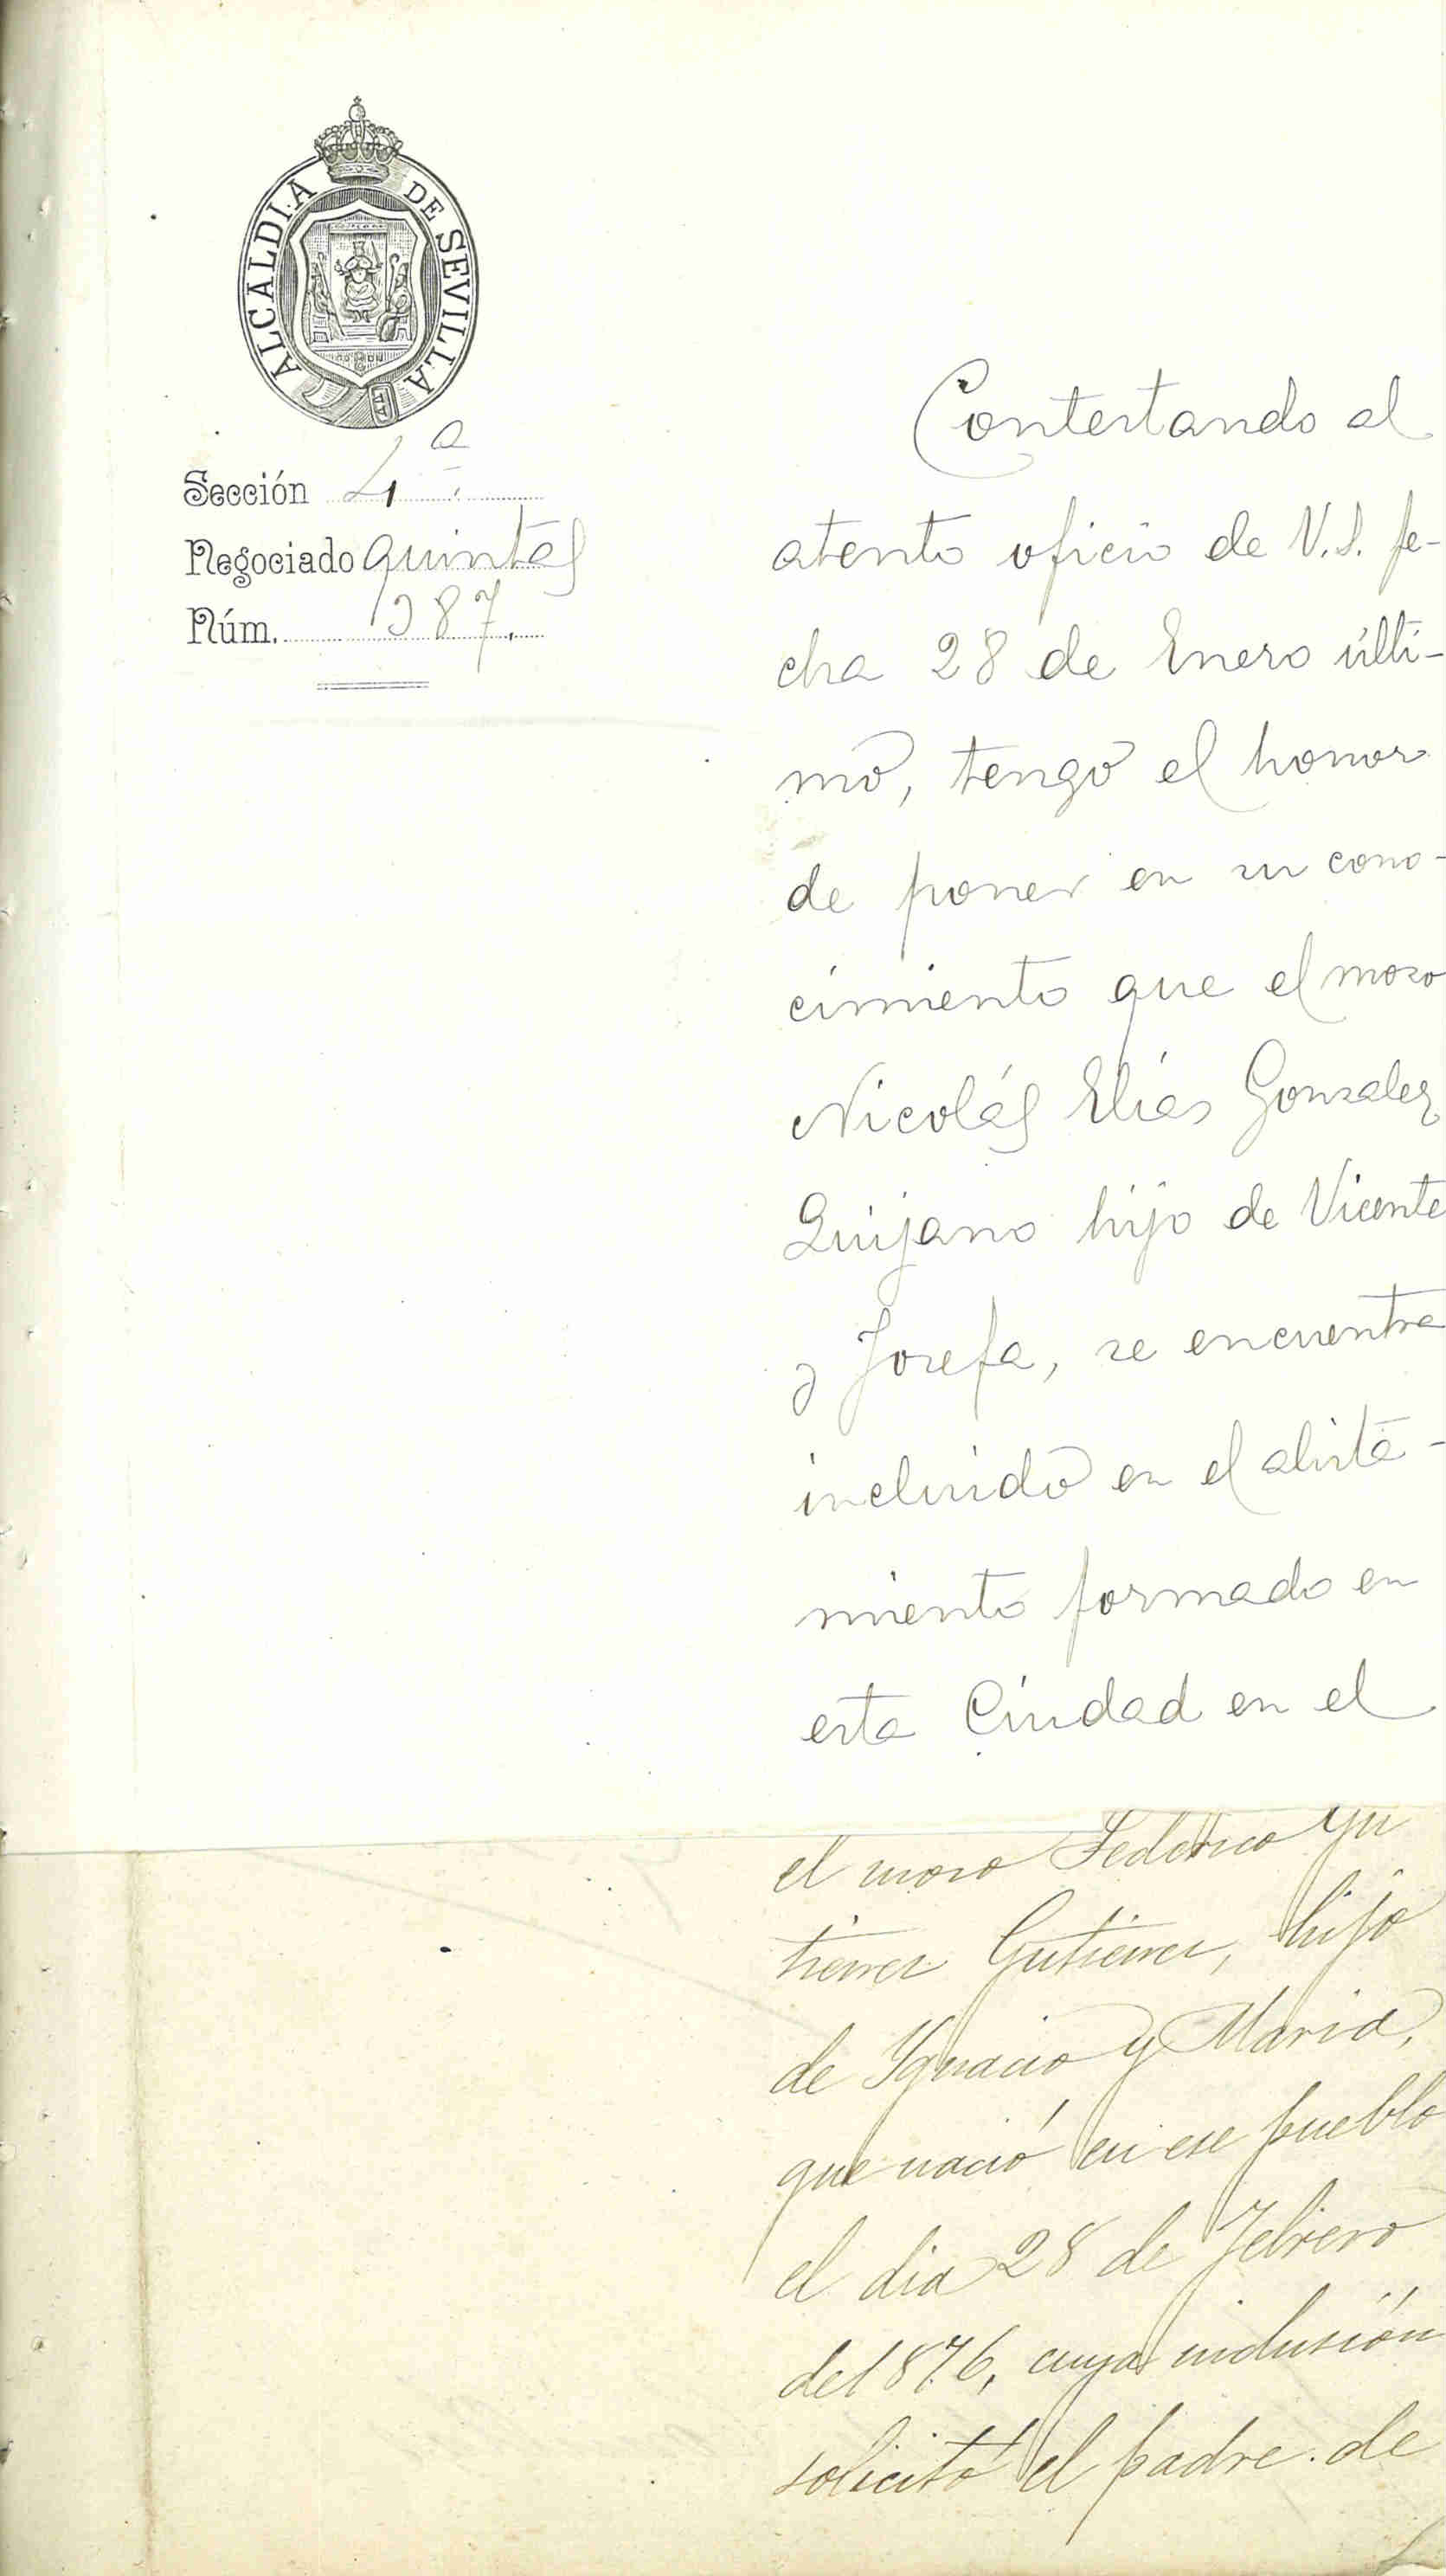 ALCALDIA DE SEVILLA
Sección 4ª
Negociado Quintas
Núm. 987.
Contestando al
atento oficio de V.S. fe-
cha 28 de Enero últi-
mo, tengo el honor
de poner en su cono-
cimiento que el moso
Nicolás Elías Gonzalez
Quijano hijo de Vicente
y Josefa, se encuentra
incluido en el alista-
miento formado en
esta Ciudad en el
el moso Federico Gu
tierrez Gutierrez, hijo
de Ygnacio y Maria,
que nació en ese pueblo
el dia 28 de Febrero
del 876, cuya inclusión
solicitó el padre de